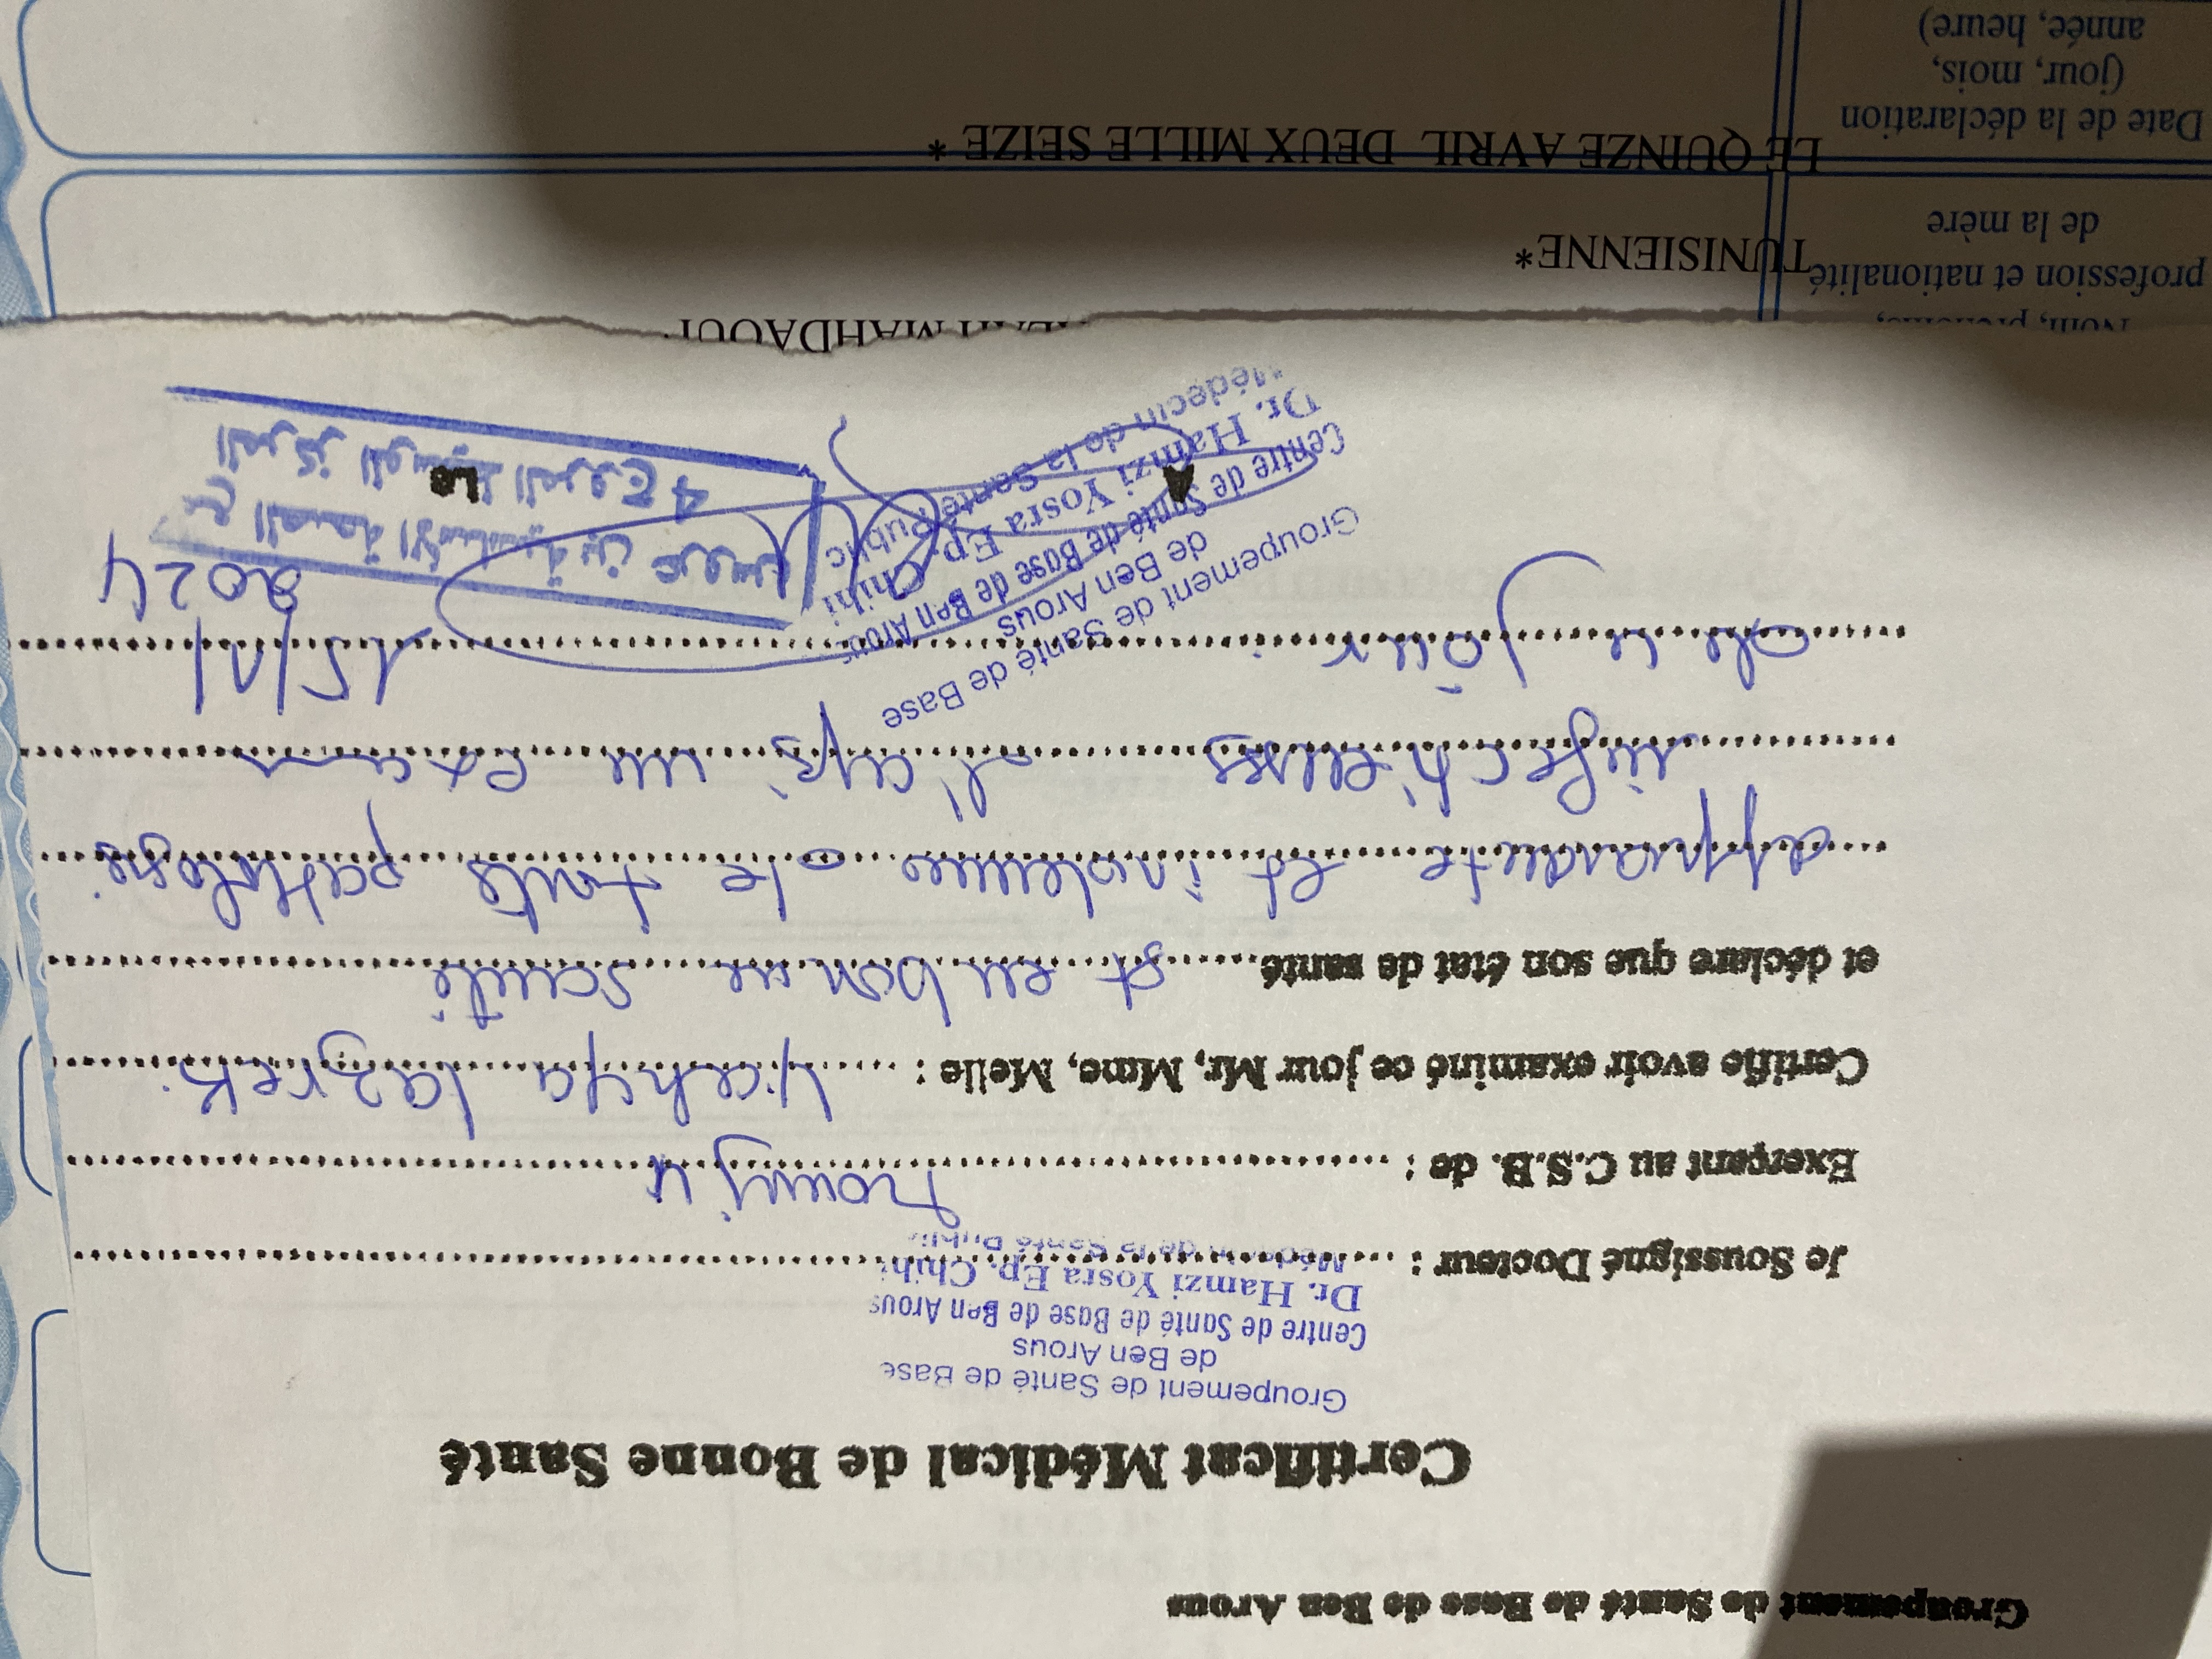 Groupement de Santé de Base de Ben Arous
Certificat Médical de Bonne Santé
Groupement de Santé de Base
de Ben Arous
Centre de Santé de Base de Ben Arous
Dr. Hamzi Yosra Ep. Chihi
Médecin de la Santé Public
Je Soussigné Docteur :
Exerçant au C.S.B. de :
Certifie avoir examiné ce jour Mr, Mme, Melle : Yahya lazreki
et déclare que son état de santé et en bonne santé
apparente et indemne de toute pathologie
infectieuses d'aps un examen
de ce jour
15/1/
2024
Groupement de Santé de Base
de Ben Arous
Centre de Santé de Base de Ben Arous
Dr. Hamzi Yosra Ep. Chihi
Médecin de la Santé Public
MAHDAOUI
profession et nationalité
de la mère
TUNISIENNE*
Date de la déclaration
(jour, mois,
année, heure)
LE QUINZE AVRIL DEUX MILLE SEIZE *